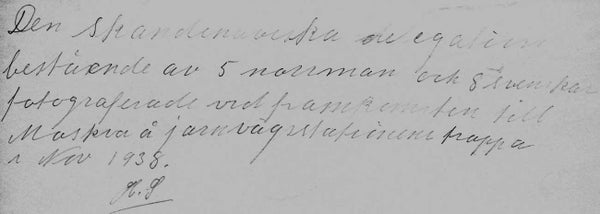 Den skandinaviska delegation
bestående av 5 norrman och 8 svenskar
fotograferade vid framkomsten till
Moskva å jarnvägsstationens trappa
i Nov 1938.
H.S